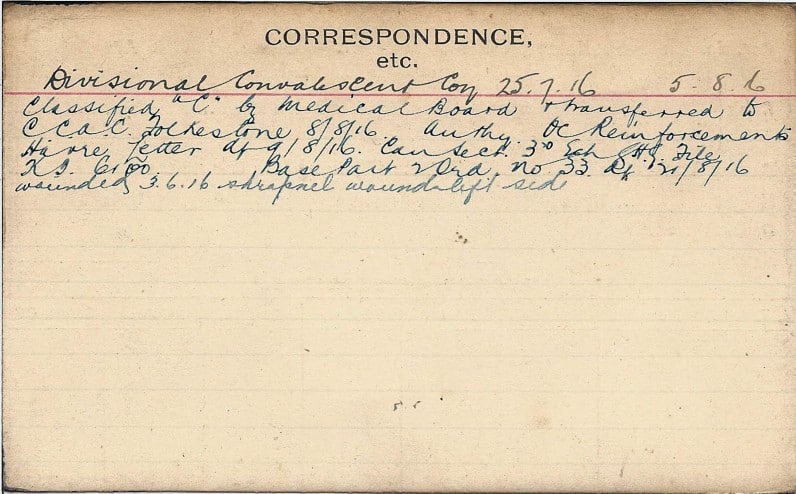 CORRESPONDENCE,
etc.
Divisional Convalescent Coy 25.7.16 5.8.16
Classified "C" by Medical Board & transferred to
C.C.a.C. Folkestone 8/8/16. Authy. OC Reinforcements
Havre letter dt 9/8/16. Can Sect. 3rd Ech File
Base Part 2 Ord. no 33. dt 21/8/16
wounded 3.6.16 shrapnel wound left side